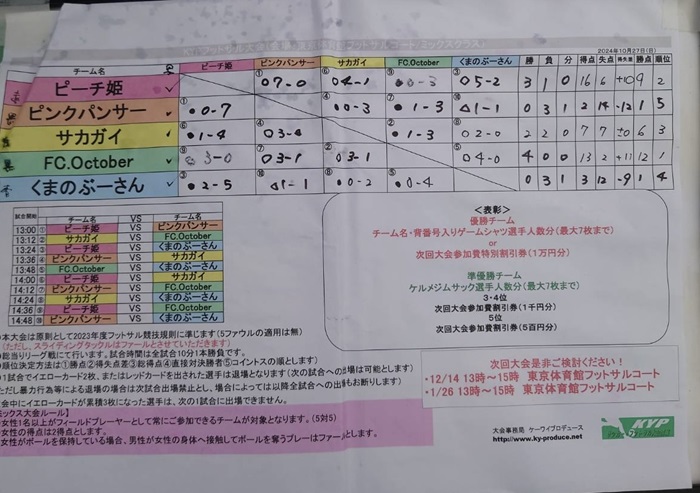 2024年10月27日(日)
チーム名 ピーチ姫 ピンクパンサー サカガイ FC.October くまのぶーさん 勝 負 分 得点 失点 得失差 勝点 順位
ピーチ姫 ⑦-0 4-1 0-3 5-2 3 1 0 16 6 +10 9 2
ピンクパンサー ●0-7 ●0-3 ●1-3 △1-1 0 3 1 2 14 -12 1 5
サカガイ ●1-4 3-0 ●1-3 2-0 2 2 0 7 7 ±0 6 3
FC.October 3-0 3-1 3-1 4-0 4 0 0 13 2 +11 12 1
くまのぶーさん ●2-5 △1-1 ●0-2 ●0-4 0 3 1 3 12 -9 1 4
試合開始 チーム名 VS チーム名
13:00 ① ピーチ姫 VS ピンクパンサー
13:12 ② サカガイ VS FC.October
13:24 ③ ピーチ姫 VS くまのぶーさん
13:36 ④ ピンクパンサー VS サカガイ
13:48 ⑤ FC.October VS くまのぶーさん
14:00 ⑥ ピーチ姫 VS サカガイ
14:12 ⑦ ピンクパンサー VS FC.October
14:24 ⑧ サカガイ VS くまのぶーさん
14:36 ⑨ ピーチ姫 VS FC.October
14:48 ⑩ ピンクパンサー VS くまのぶーさん
<表彰>
優勝チーム
チーム名・背番号入りゲームシャツ選手人数分(最大7枚まで)
or
次回大会参加費特別割引券(1万円分)
準優勝チーム
ケルメジムサック選手人数分(最大7枚まで)
3・4位
次回大会参加費割引券(1千円分)
5位
次回大会参加費割引券(5百円分)
本大会は原則として2023年度フットサル競技規則に準じます(5ファウルの適用は無)
(ただし、スライディングタックルはファールとさせていただきます)
総当りリーグ戦にて行います。試合時間は全試合10分1本勝負です。
順位決定方法は①勝点②得失点差③総得点④直接対決勝者⑤コイントスの順とします)
1試合でイエローカード2枚、またはレッドカードを出された選手は退場となります(次の試合への出場は可能とします)
ただし暴力行為等による退場の場合は次試合出場禁止とし、場合によっては以降全試合への出場もお断りします)
大会中にイエローカードが累積3枚になった選手は、次の1試合に出場できません。
ミックス大会ルール】
女性1名以上がフィールドプレーヤーとして常にご参加できるチームが対象となります。(5対5)
女性の得点は2得点とします。
女性がボールを保持している場合、男性が女性の身体へ接触してボールを奪うプレーはファールとします。
次回大会是非ご検討ください!
・12/14 13時~15時 東京体育館フットサルコート
・1/26 13時~15時 東京体育館フットサルコート
大会事務局 ケーワイプロデュース
http://www.ky-produce.net
KYP